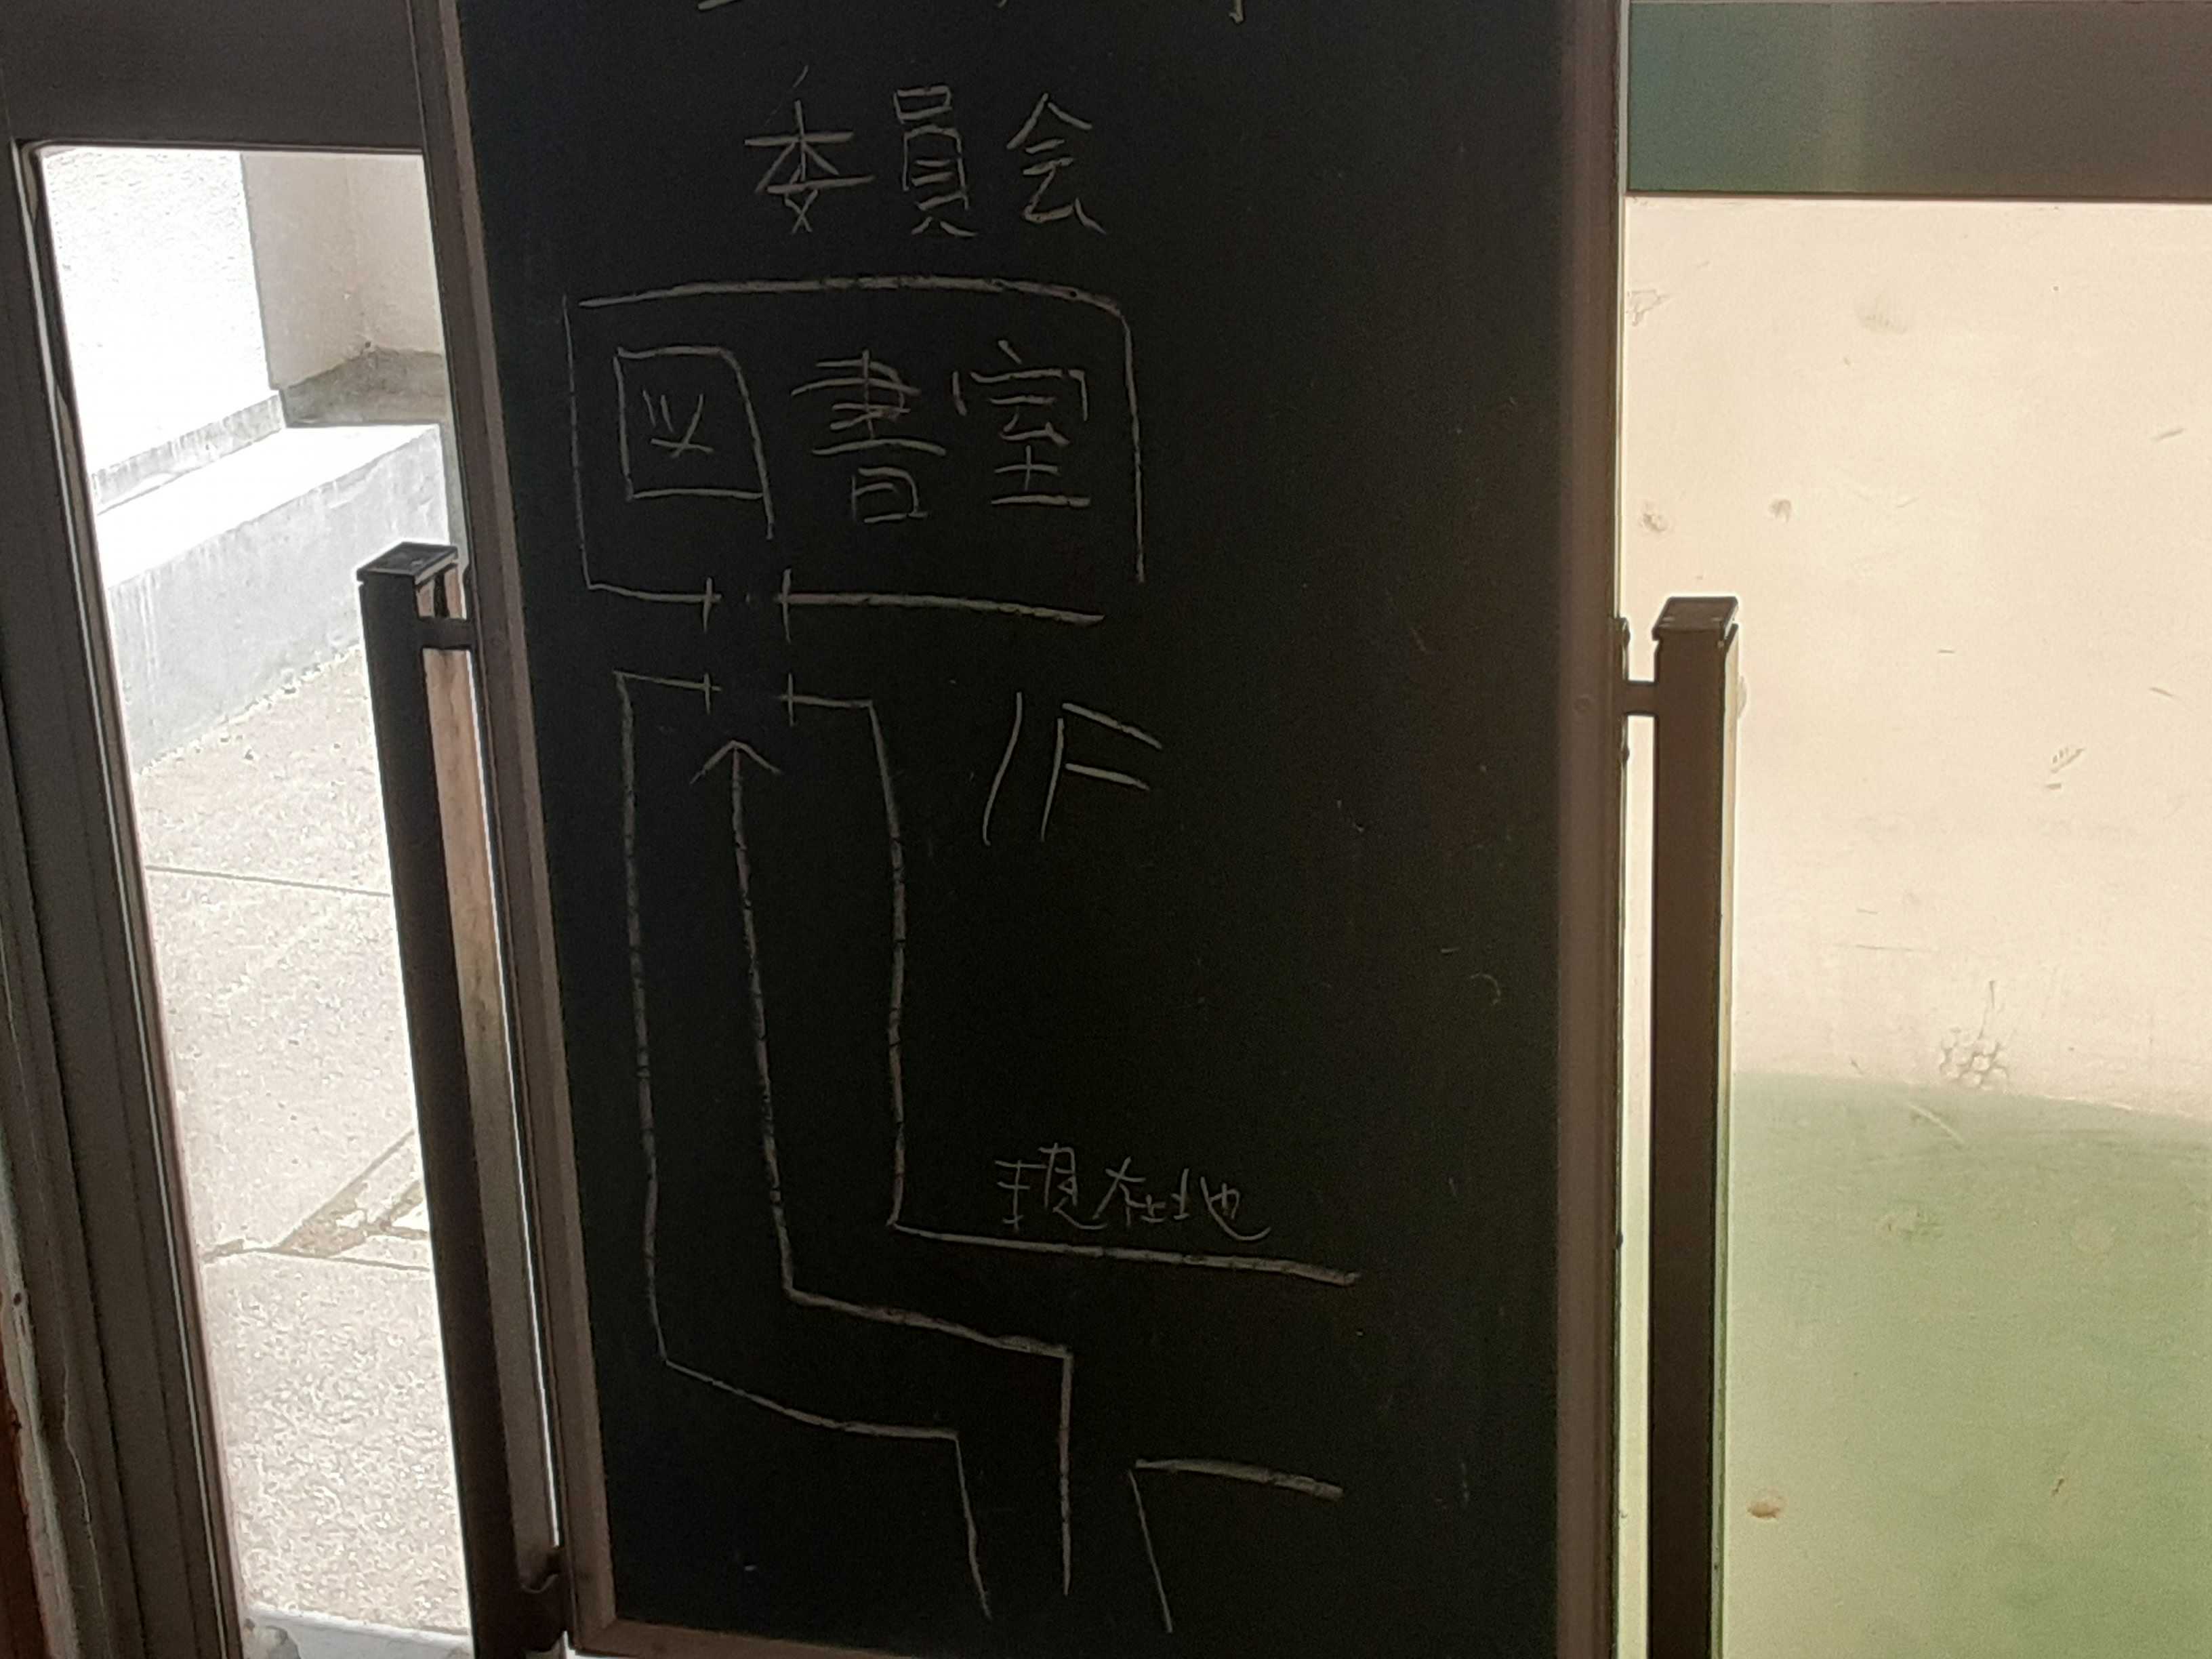 委員会
図書室
1F
現在地